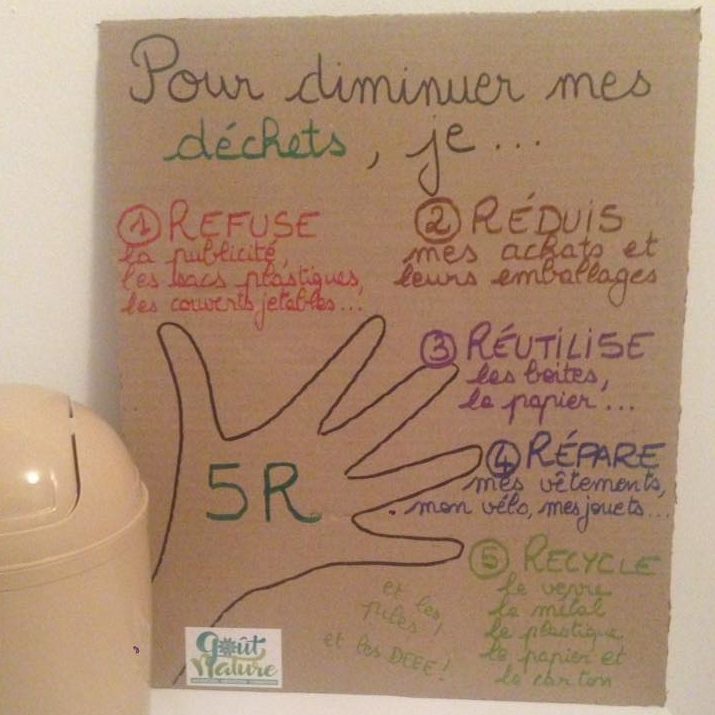 Pour diminuer mes
déchets, je...
① REFUSE
la publicité,
les sacs plastiques,
les couverts jetables...
② RÉDUIS
mes achats et
leurs emballages
③ RÉUTILISE
les boites,
le papier...
④ RÉPARE
mes vêtements,
mon vélo, mes jouets...
5R
⑤ RECYCLE
le verre
le métal
le plastique
le papier et
le carton
et les
piles!
et les DEEE!
Goût
Nature